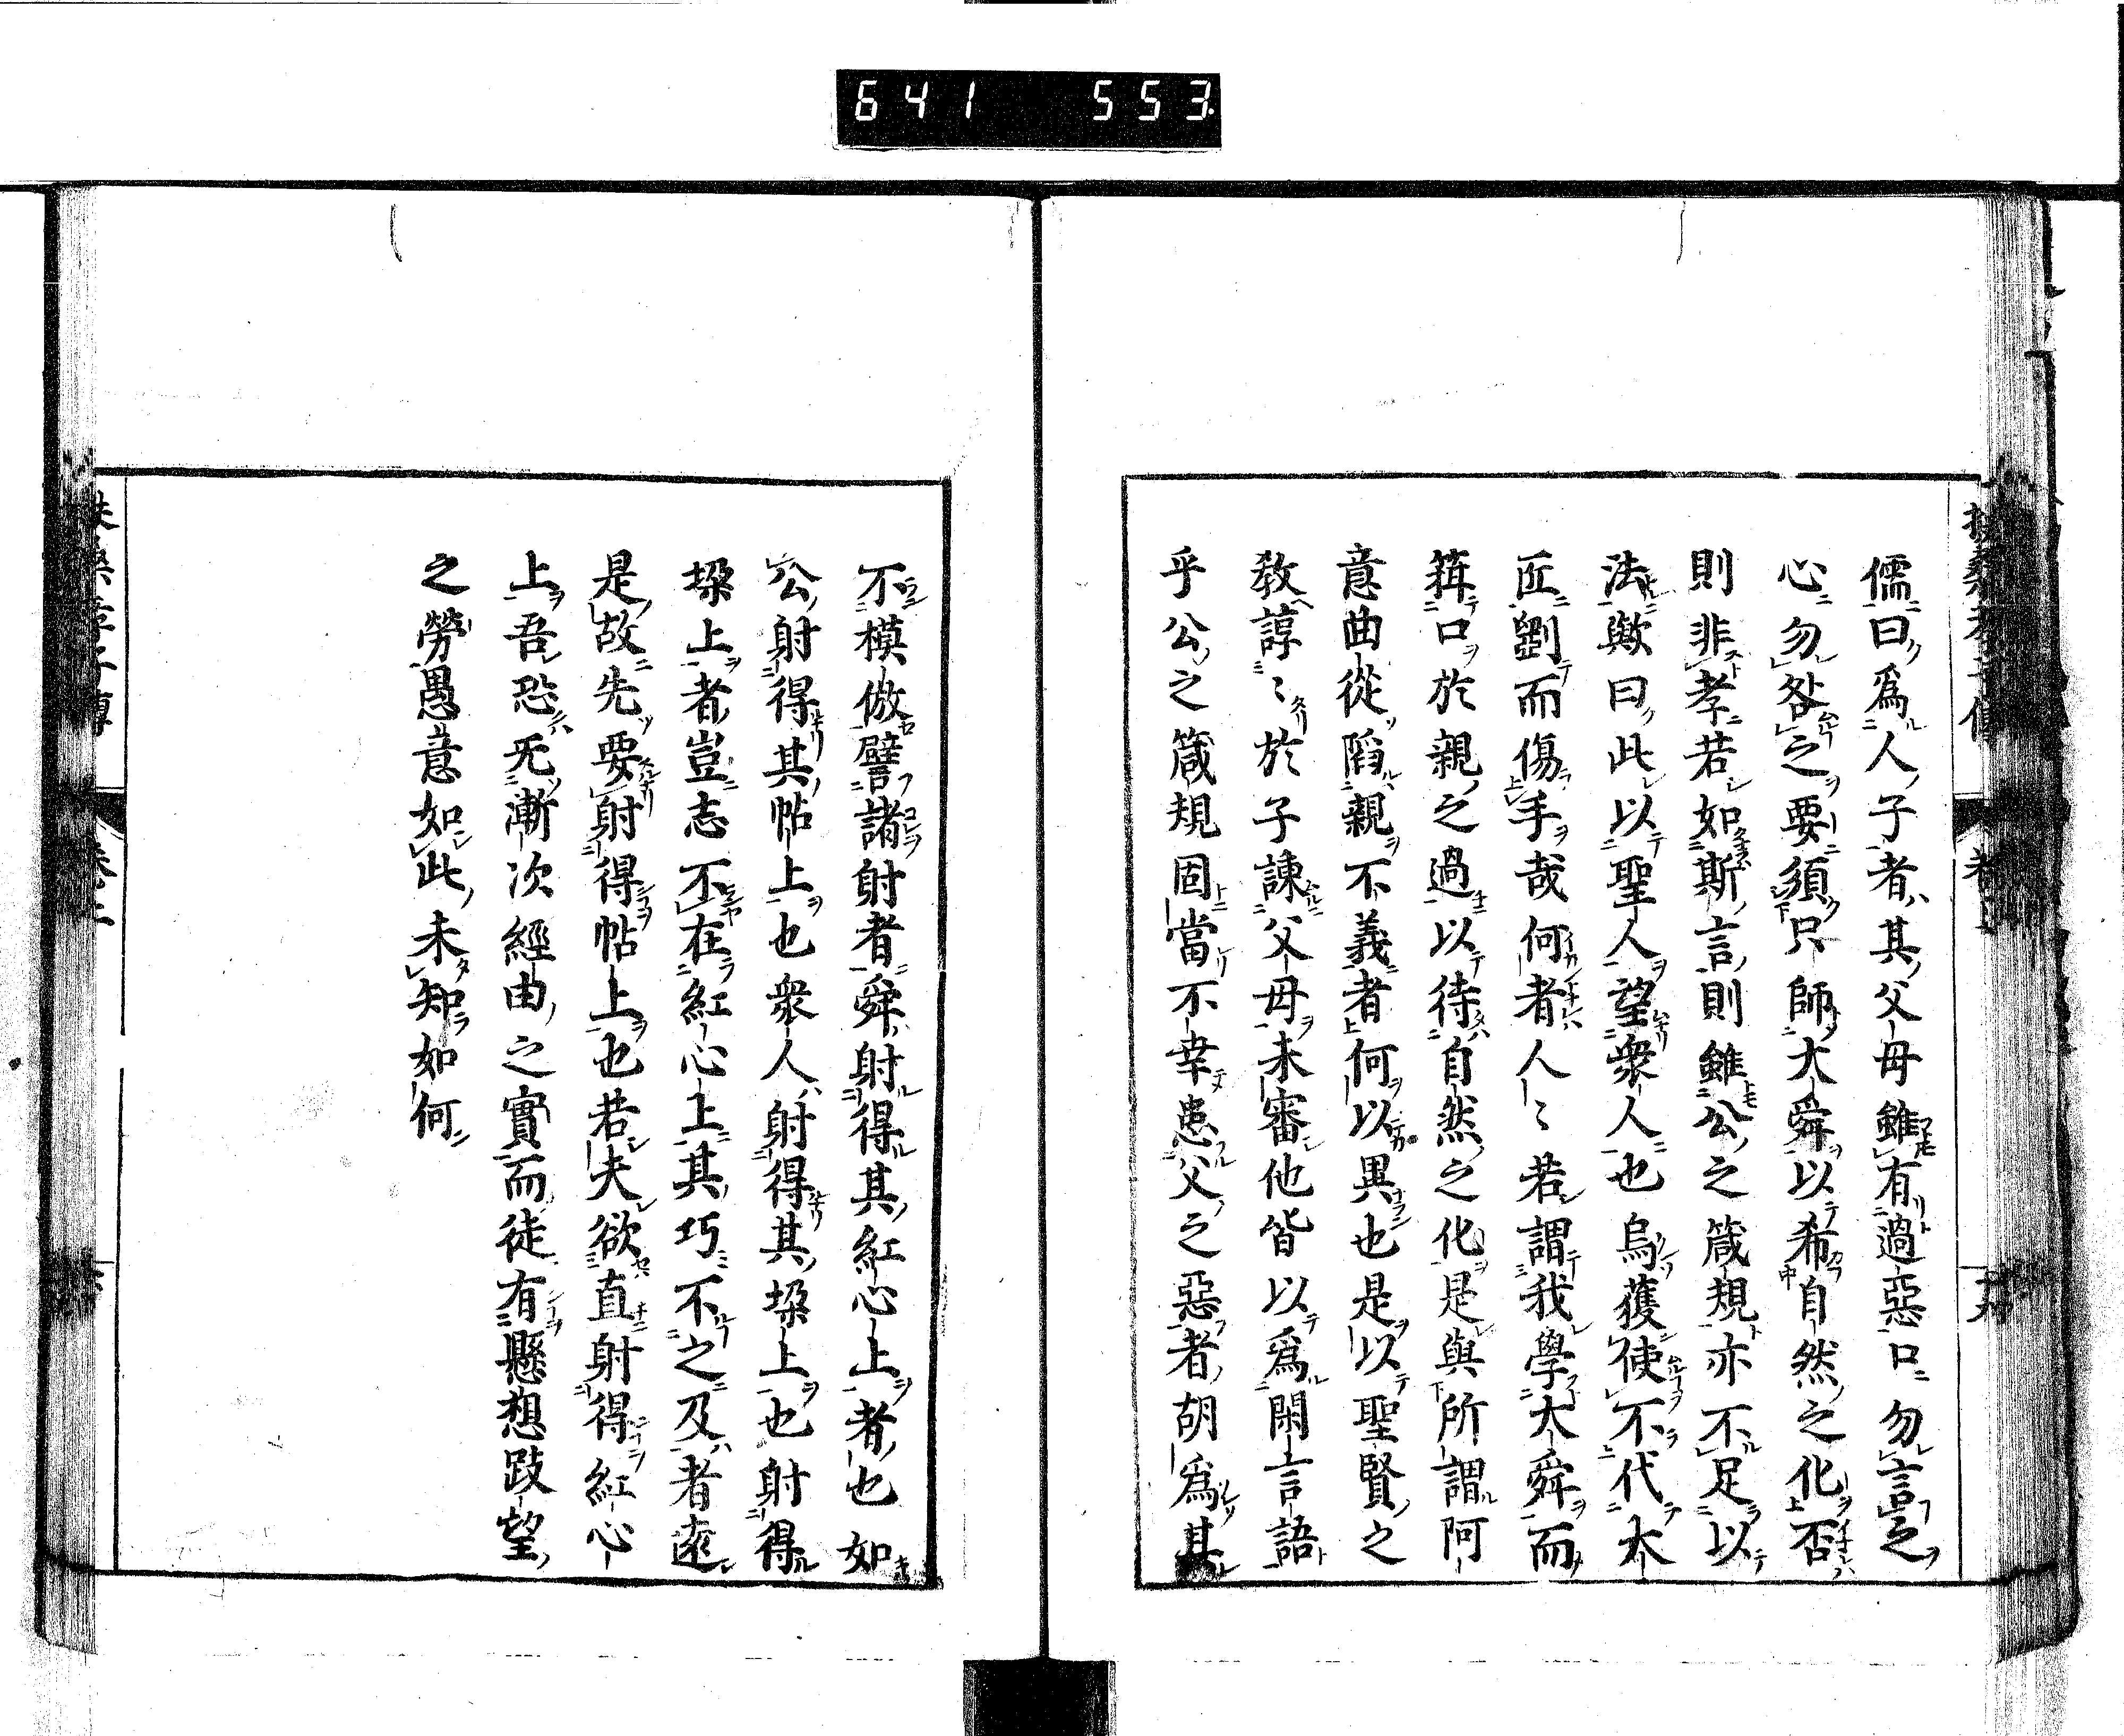 641 553
儒曰爲人子者其父母雖有過惡口勿言之
心勿咎之要須只師大舜以希自然之化否
則非孝若如斯言則雖公之箴規亦不足以
法歟曰此以聖人望衆人也烏獲使不代大
匠劉而傷手哉何者人〻若謂我學大舜而
箝口於親之過以待自然之化是與所謂阿
意曲從陷親不義者何以異也是以聖賢之
教諄〻於子諫父母未審他皆以爲閑言語
乎公之箴規固當不幸患父之惡者胡爲其
不模倣譬諸射者舜射得其紅心上者也如
公射得其帖上也衆人射得其垛上也射得
垛上者豈志不在紅心上其巧不之及者遠
是故先要射得帖上也若夫欲直射得紅心
上吾恐旡漸次經由之實而徒有懸想跂望
之勞愚意如此未知如何